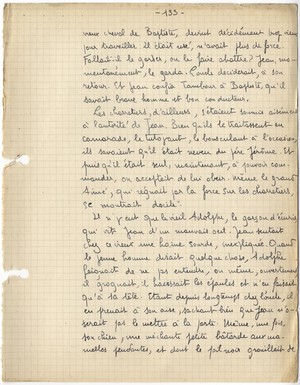 - 133 -
vieux cheval de Baptiste, devenu décidément trop vieux
pour travailler. Il était usé, n'avait plus de force.
Fallait-il le garder, ou le faire abattre ? Jean, mo-
mentanément, le garda. L'oncle déciderait, à son
retour. Et Jean confia Tambour à Baptiste, qu'il
savait brave homme et bon conducteur.
Les charretiers, d'ailleurs, s'étaient soumis aisément
à l'autorité de Jean. Bien qu'ils le traitassent en
camarade, le tutoyant, le bousculant à l'occasion,
ils savaient qu'il était neveu du père Jérôme. Et
puisqu'il était seul, maintenant, à pouvoir com-
mander, on acceptait de lui obéir. Même le grand
Aimé, qui régnait par la force sur les charretiers,
se montrait docile.
Il n'y eut que le vieil Adolphe, le garçon d'écurie,
qui vit Jean d'un mauvais oeil. Jean sentait
chez ce vieux une haine sourde, inexpliquée. Quand
le jeune homme disait quelque chose, Adolphe
feignait de ne pas entendre, ou même, ouvertement,
il grognait, il haussait les épaules et n'en faisait
qu'à sa tête. Etant depuis longtemps chez l'oncle, il
en prenait à son aise, sachant bien que Jean n'o-
serait pas le mettre à la porte. Même, une fois,
son chien, une méchante petite bâtarde aux ma-
melles pendantes, et dont le poil noir grouillait de